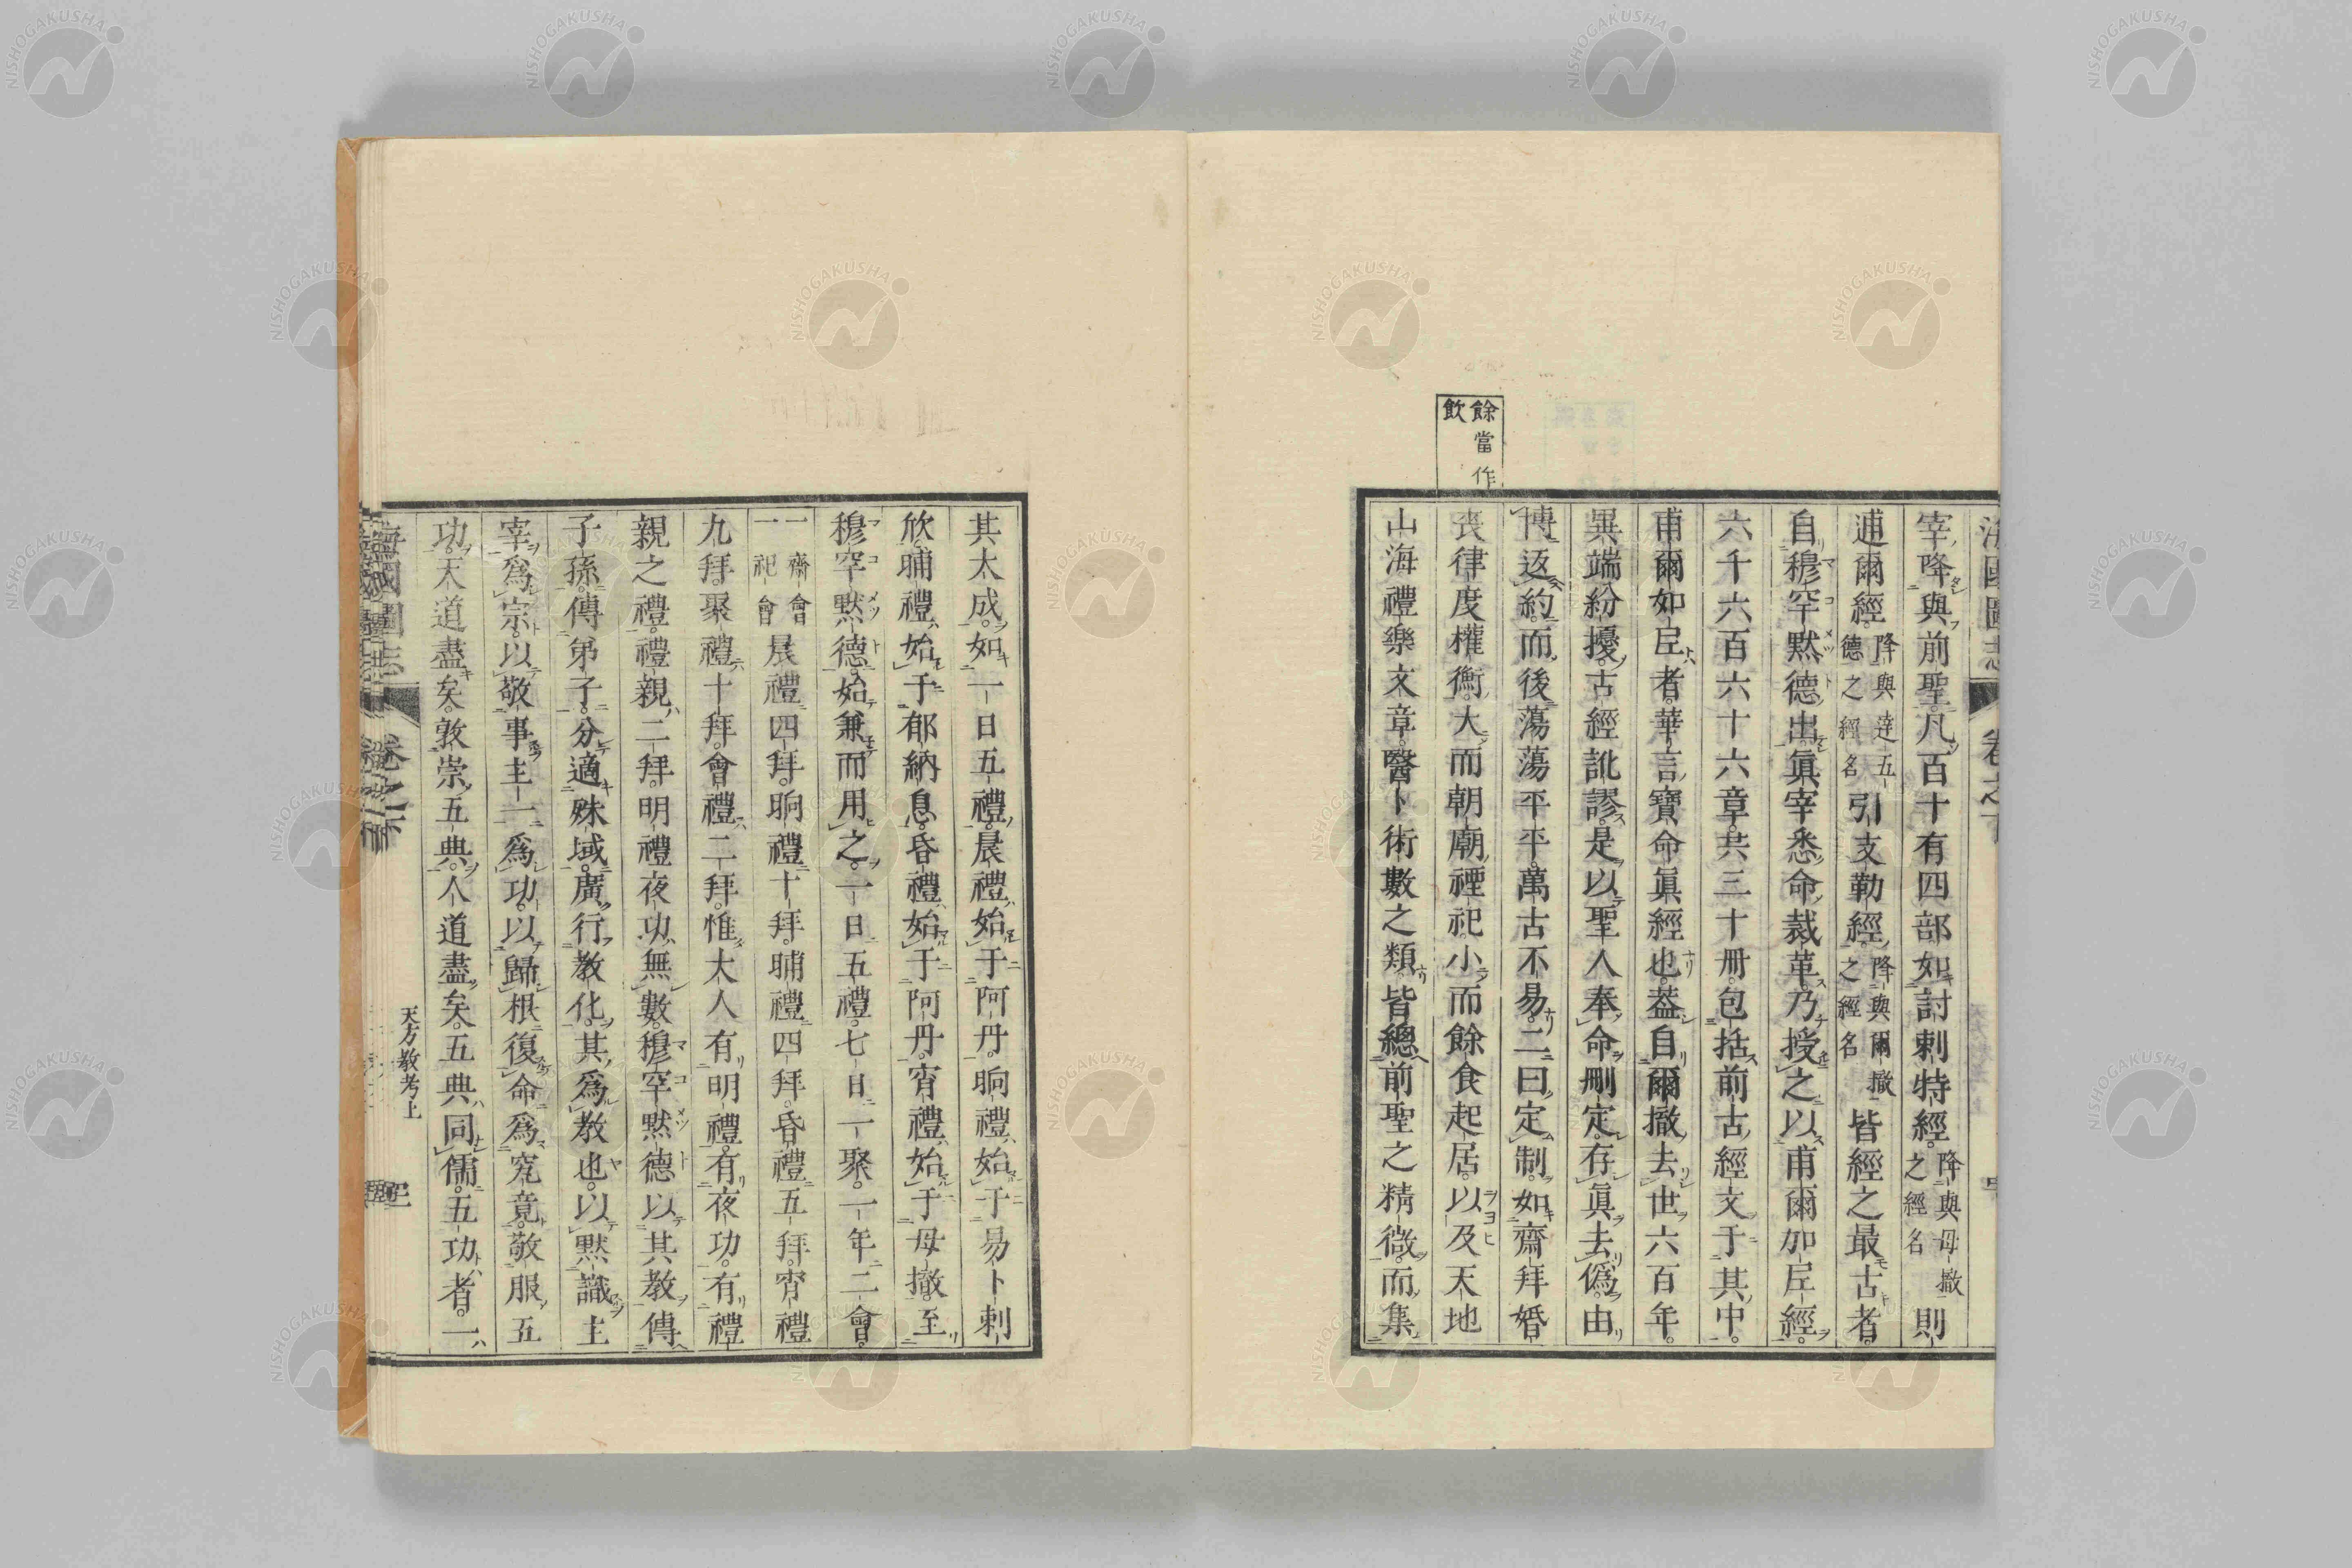 宰降與前聖凡百十有四部如討剌特經降與母撤之經名則
逋爾經降與達五德之經名引支勒經降與爾撤之經名皆經之最古者
自穆罕黙德出眞宰悉命裁革乃授之以甫爾加㠯經
六千六百六十六章共三十册包括前古經文于其中
甫爾如㠯者華言寶命眞經也葢自爾撤去世六百年
異端紛擾古經訛謬是以聖人奉命刪定存眞去僞由
博返約而後蕩蕩平平萬古不易二曰定制如齋拜婚
餘當作飲
喪律度權衡大而朝廟禋祀小而餘食起居以及天地
山海禮樂文章醫卜術數之類皆總前聖之精微而集
其大成如一日五禮晨禮始于阿丹晌禮始于易卜剌
欣晡禮始于郁納息昏禮始于阿丹宵禮始于母撤至
穆罕黙德始兼而用之一日五禮七日一聚一年二會
一齋會一祀會晨禮四拜晌禮十拜晡禮四拜昏禮五拜宵禮
九拜聚禮十拜會禮二拜惟大人有明禮有夜功有禮
親之禮禮親二拜明禮夜功無數穆罕黙德以其教傳
子孫傳弟子分適殊域廣行教化其爲教也以黙識主
宰爲宗以敬事主一爲功以歸根復命爲究竟敬服五
功天道盡矣敦崇五典人道盡矣五典同儒五功者一
海國圖志
天方教考上
NISHOGAKUSHA